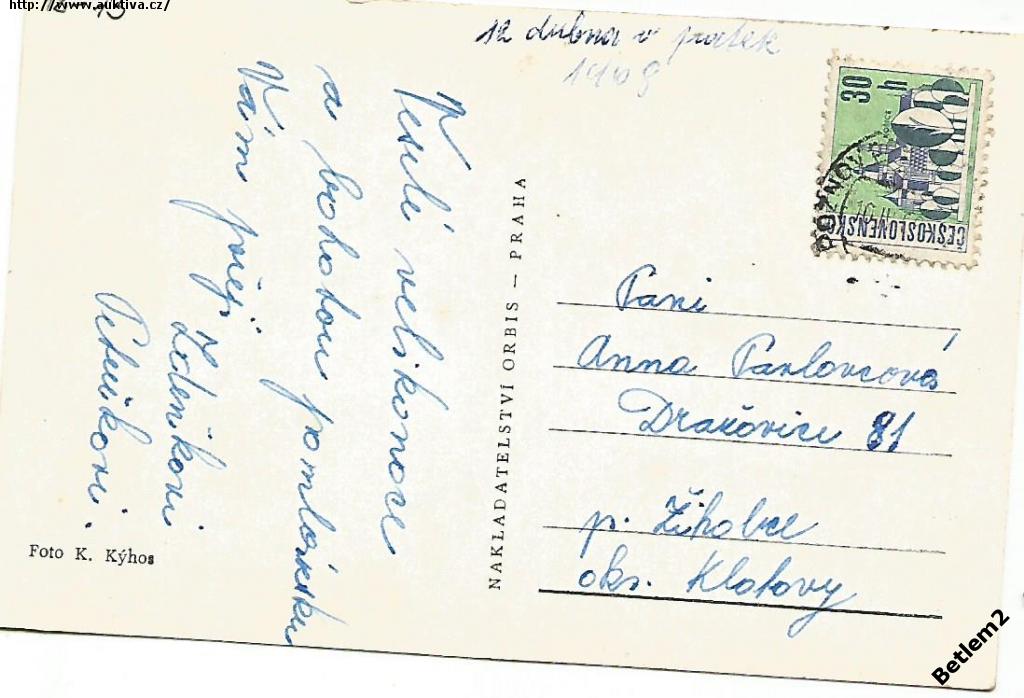 http://www.auktiva.cz/
12 dubna v pátek
1968
30 h
ČESKOSLOVENSKO
Veselé velikonoce
a bohatou pomlázku
Vám přejí
Zdeníkovi
Petříkovi.
NAKLADATELSTVÍ ORBIS — PRAHA
Paní
Anna Pavlovcová
Dražovice 81
p. Žihobce
okr. Klatovy
Foto K. Kýhos
Betlem2